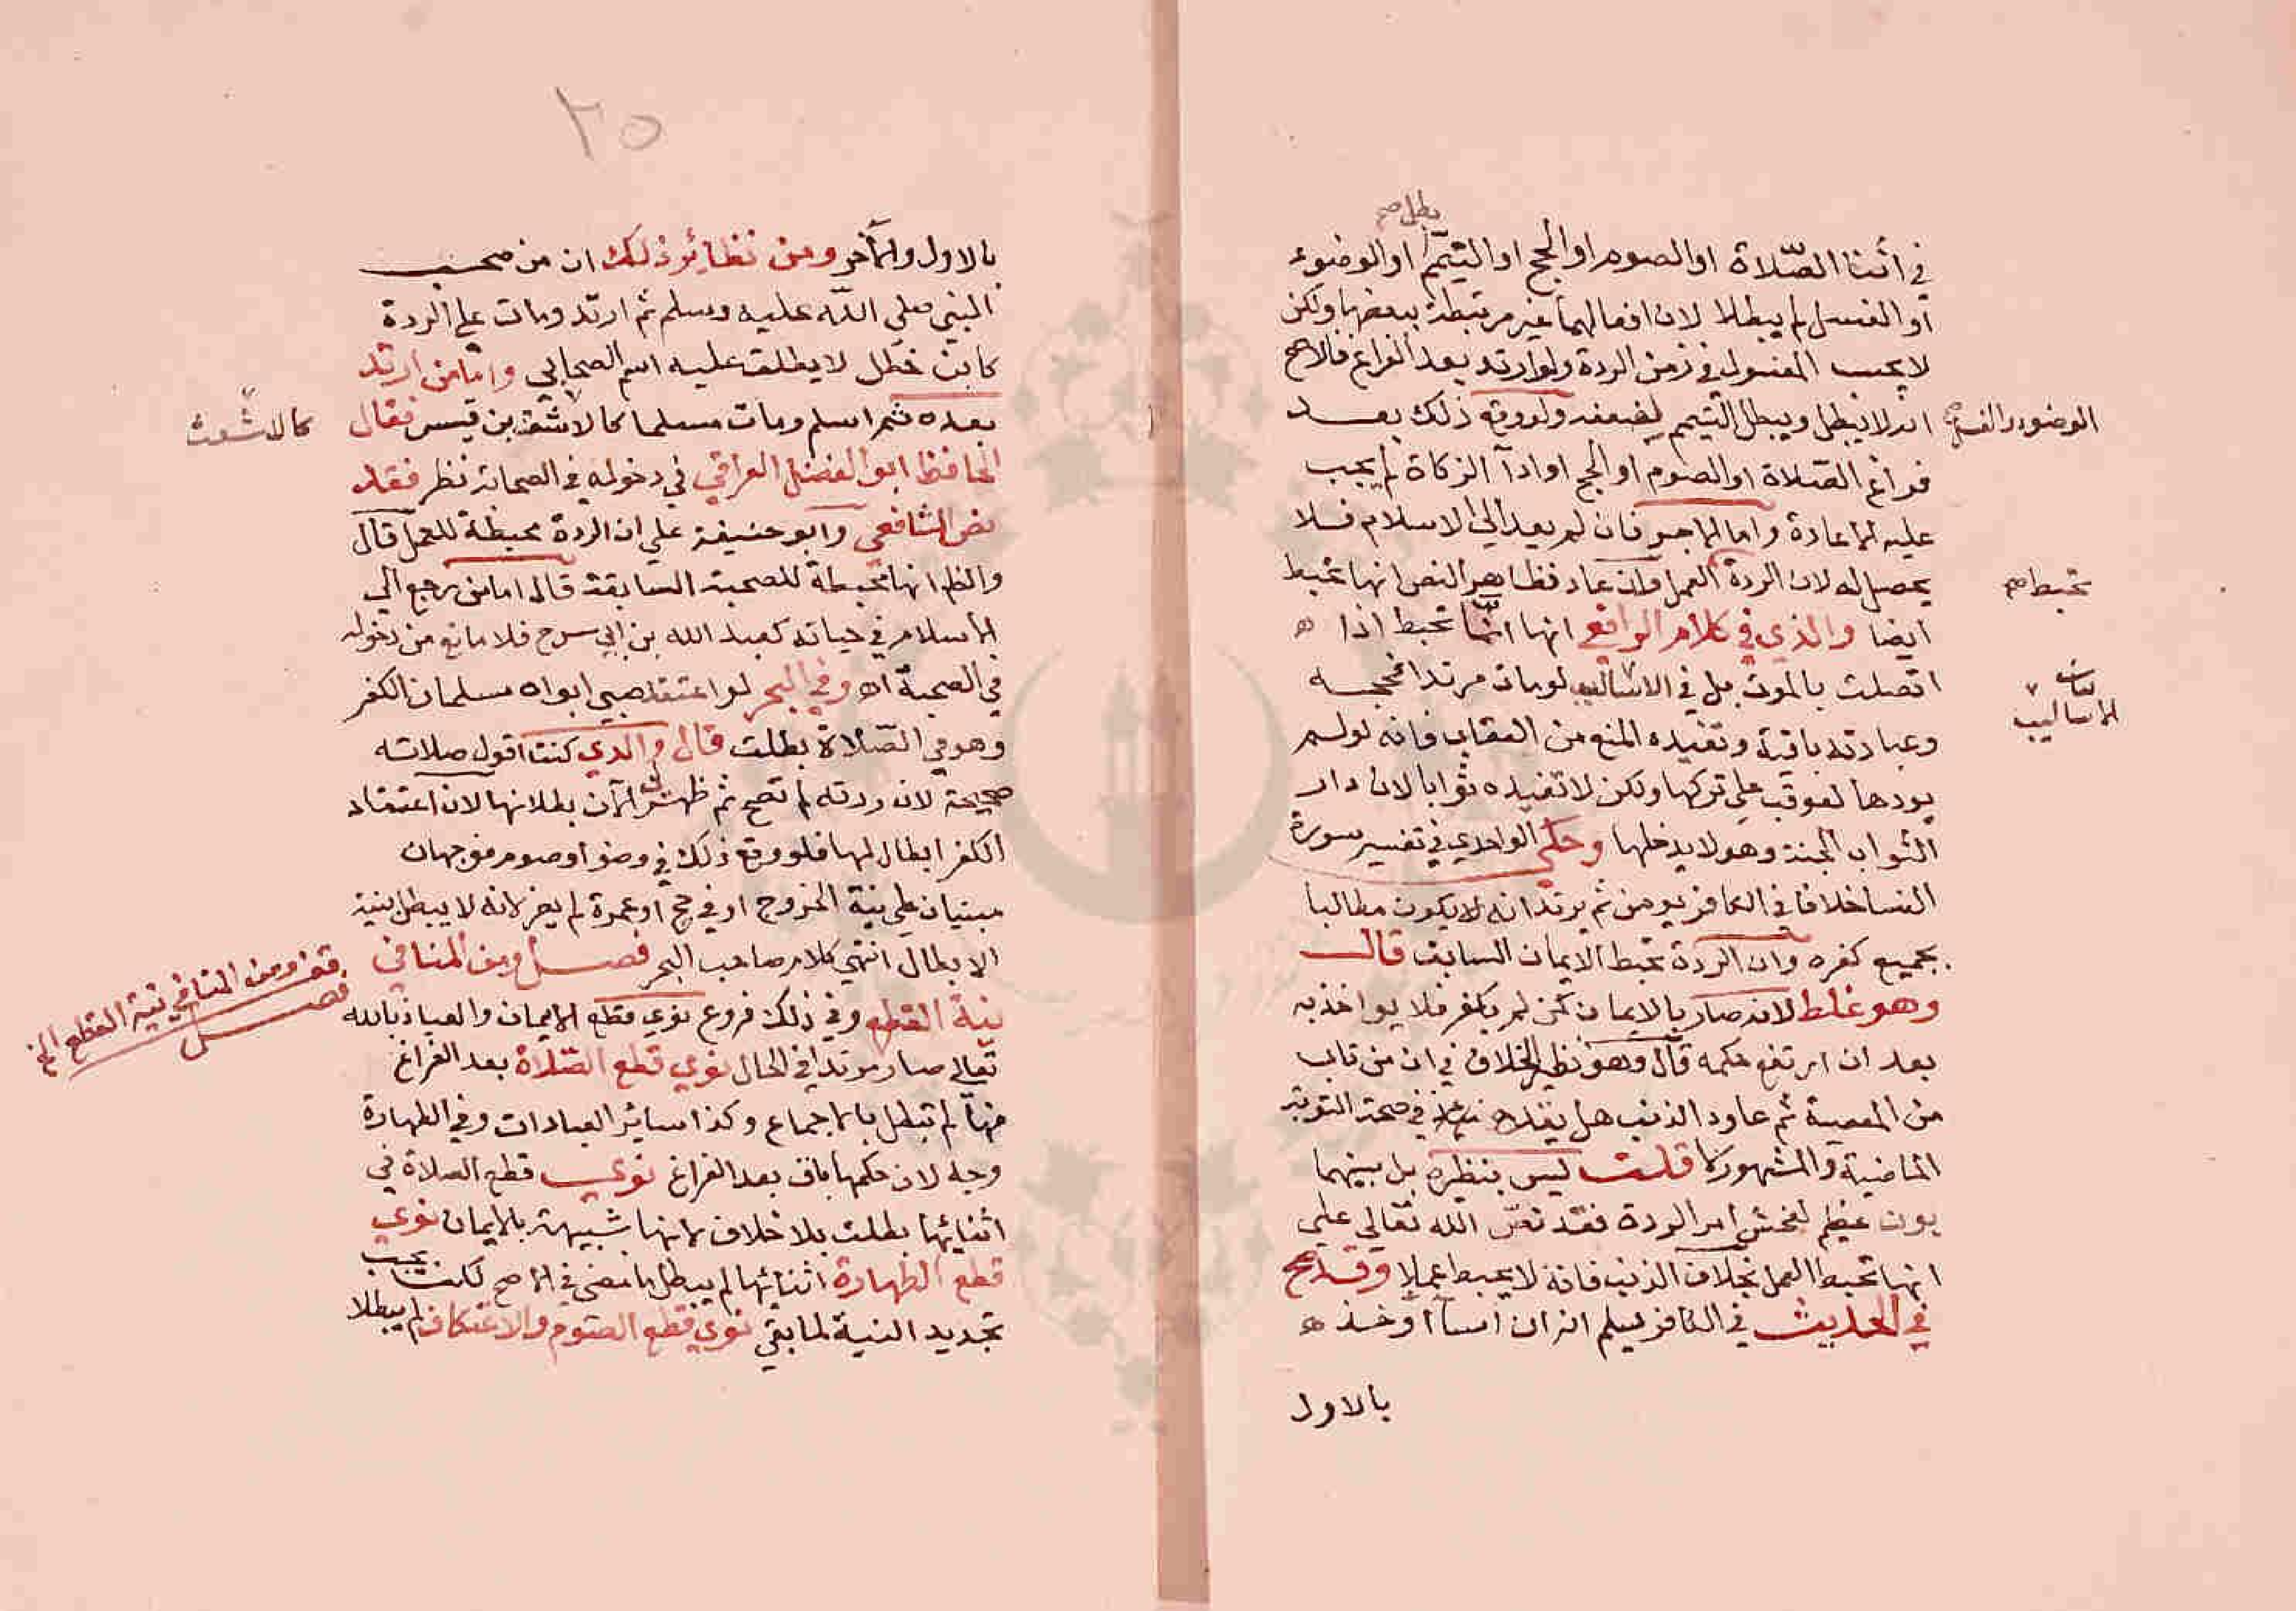 بطل صح
في أثنا الصّلاة او الصوم او الحج او التيمّم او الوضوء
أو الغسل لم يبطلا لان افعالهما غير مرتبطة ببعضها ولكن
لا يحسب المغسول في زمن الردة ولو ارتد بعد الفراغ فالاصح
انه لا يبطل ويبطل التيمم لضعفه ولو وقع ذلك بعد
الوضوء والغسل
فراغ الصّلاة او الصوم او الحج او ادآ الزكاة لم يجب
عليه الاعادة واما الاجر فان لم يعد الي الاسلام فلا
يحصل له لان الردة العمل وان عاد فظاهر النص انها تحبط
تحبط صح
ايضا والذي في كلام الرافعي انها انّما تحبط اذا ه
اتصلت بالموت بل في الاساليب لو مات مرتدا فحجه
بيان
الاساليب
وعبادته باقية وتفيده المنع من العقاب فانه لو لم
يودها لعوقب علي تركها ولكن لا تفيده ثوابا لان دار
الثواب الجنة وهو لا يدخلها وحكي الواحدي في تفسير سورة
النسا خلافا في الكافر يومن ثم يرتد انه لا يكون مطالبا
بجميع كفره وان الردة تحبط الايمان السابق قال
وهو غلط لانه صار بالايمان كمن لم يكفر فلا يواخذ به
بعد ان ارتفع حكمه قال وهو نظير الخلاف في ان من تاب
من المعصية ثم عاود الذنب هل يقدح في صحة التوبة
الماضية والمشهور لا قلت ليس بنظيره بل بينهما
بون عظيم لفحش امر الردة فقد نصّ الله تعالي علي
انها تحبط العمل بخلاف الذنب فانه لا يحبط عملا وقد صح
في الحديث في الكافر يسلم انه ان اسآ أوخذ ه
بالاول
٢٥
بالاول والآخر ومن نظائر ذلك ان من صحب
النبي صلي الله عليه وسلم ثم ارتد ومات علي الردة
كابن خطل لا يطلق عليه اسم الصحابي واما من ارتد
بعده ثم اسلم ومات مسلما كالاشعث بن قيس فقال
كالاشعث
الحافظ ابو الفضل العراقي في دخوله في الصحابة نظر فقد
نص الشافعي وابو حنيفة علي ان الردة محبطة للعمل قال
والظ انها محبطة للصحبة السابقة قال اما من رجع الي
الاسلام في حياته كعبد الله بن ابي سرح فلا مانع من دخوله
في الصحبة اه وفي البحر لو اعتقد صبي ابواه مسلمان الكفر
وهو في الصّلاة بطلت قال والدي كنت اقول صلاته
صحيحة لان ردته لم تصح ثم ظهر لي الآن بطلانها لان اعتقاد
الكفر ابطال لها فلو وقع ذلك في وضوا وصوم فوجهان
مبنيان علي نية الخروج او في حج او عمرة لم يضر لانه لا يبطل بنية
الابطال انتهي كلام صاحب البحر فصل ومن المنافي
نية القطع وفي ذلك فروع نوي قطع الايمان والعياذ بالله
قف ومن المنافي نية القطع الخ
فصل
تعالي صار مرتدا في الحال نوي قطع الصّلاة بعد الفراغ
منها لم تبطل بالاجماع وكذا سائر العبادات وفي الطهارة
وجه لان حكمها باق بعد الفراغ نوي قطع الصلاة في
اثنائها بطلت بلا خلاف لانها شبيهة بالايمان نوي
قطع الطهارة اثنائها لم يبطل ما مضي في الاصح لكن يجب
تجديد النية لما بقي نوي قطع الصوم والاعتكاف لم يبطلا